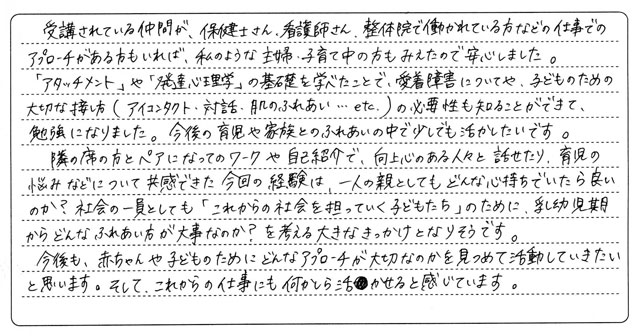 受講されている仲間が、保健士さん、看護師さん、整体院で働かれている方などの仕事での
アプローチがある方もいれば、私のような主婦・子育て中の方もみえたので安心しました。
「アタッチメント」や「発達心理学」の基礎を学べたことで、愛着障害についてや、子どものための
大切な接し方（アイコンタクト・対話・肌のふれあい…etc.）の必要性も知ることができて、
勉強になりました。今後の育児や家族とのふれあいの中で少しでも活かしたいです。
隣の席の方とペアになってのワークや自己紹介で、向上心のある人々と話せたり、育児の
悩みなどについて共感できた今回の経験は、一人の親としてもどんな心持ちでいたら良い
のか？社会の一員としても「これからの社会を担っていく子どもたち」のために、乳幼児期
からどんなふれあい方が大事なのか？を考える大きなきっかけとなりそうです。
今後も、赤ちゃんや子どものためにどんなアプローチが大切なのかを見つめて活動していきたい
と思います。そして、これからの仕事にも何かしら活かせると感じています。